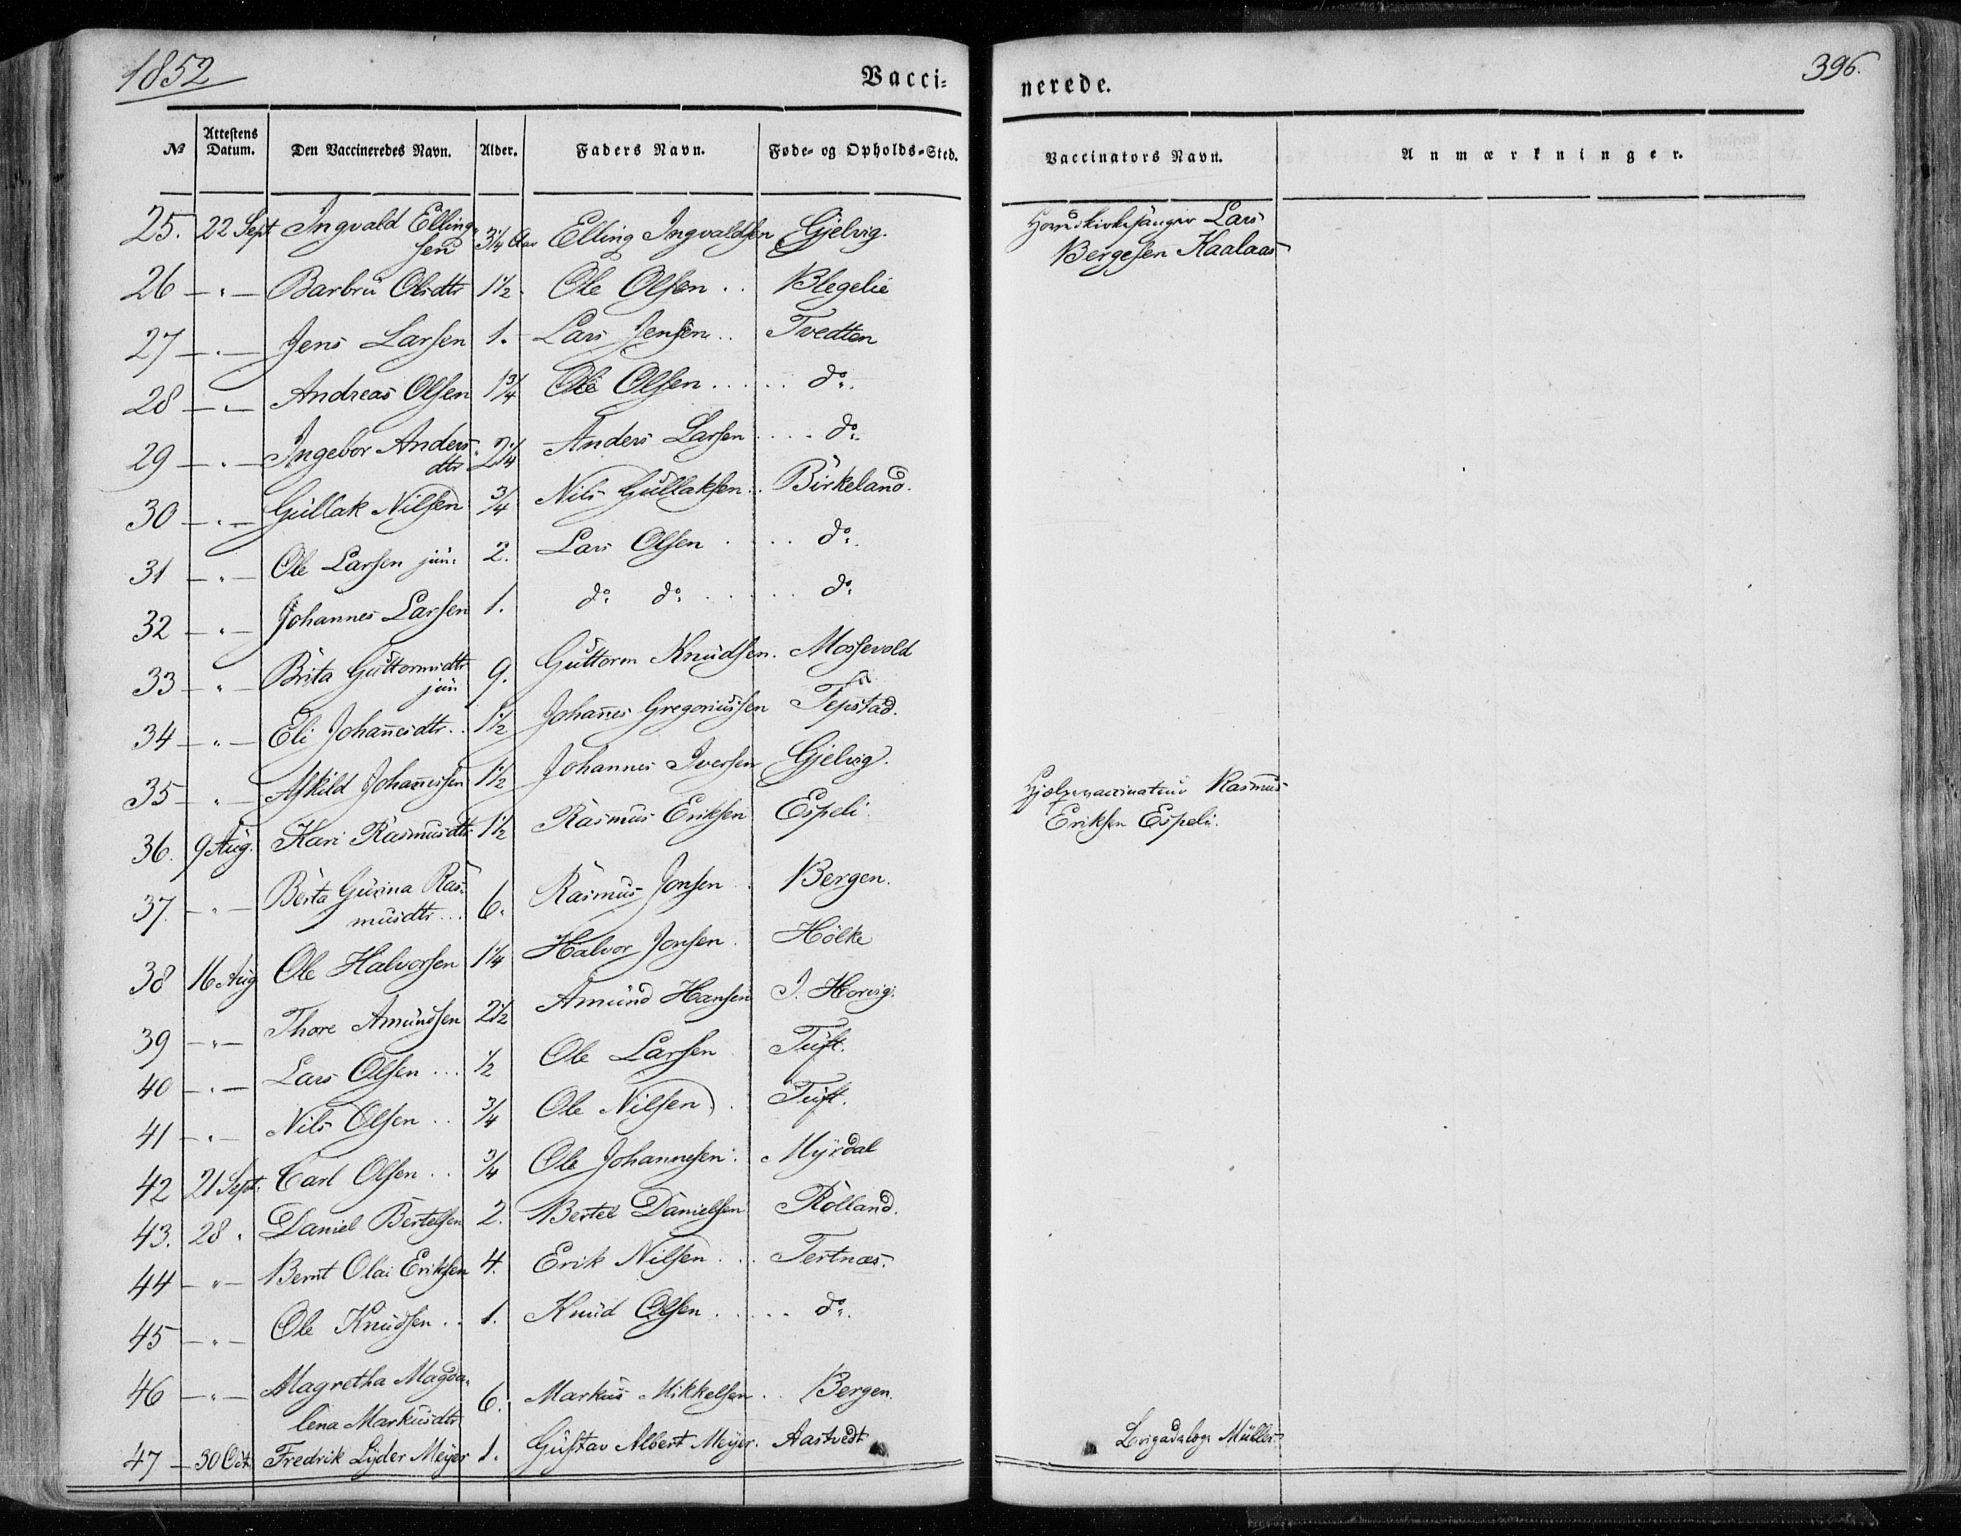 1852
Vacci-
nerede.
396.
№ Attestens Datum. Den Vaccineredes Navn. Alder. Faders Navn. Føde- og Opholds-Sted. Vaccinators Navn. Anmærkninger.
25. 22 Sept Ingvald Elling- 3¼ Aar Elling Ingvaldsen Gjelvig. Lars
sen Bergesen Kaalaas
26 — " — Barbru Olsdtr 1½. Ole Olsen . . Blegelie
27 — " — Jens Larsen 1. Lars Jensen . . Tvedten
28 — " — Andreas Olsen 1¾ Ole Olsen . . . . . do.
29 — " — Ingebor Anders- 2¼ Anders Larsen . . . . do.
dtr
30 — " — Gullak Nilsen ¾ Nils Gullaksen . . Birkeland.
31 — " — Ole Larsen jun: 2. Lars Olsen . . . . do.
32 — " — Johannes Larsen 1. do. do. . . . . . do.
33 — " — Brita Guttormsdtr 9. Guttorm Knudsen. Mossevold
jun
34 — " — Eli Johañesdtr. . 1½ Johañes Gregoriussen Tepstad.
35 — " — Askild Johañessen 1½ Johannes Iversen Gjelvig.
36. 9 Aug. Kari Rasmusdtr. 1½ Rasmus Eriksen Espeli. Hjelpevaccinateur Rasmus
Eriksen Espeli.
37. — " — Berta Gurina Ras- 6. Rasmus Jonsen . Bergen.
musdtr. . .
38 16 Aug Ole Halvorsen 1¼ Halvor Jonsen . Hölke
39 — " — Thore Amundsen 2½ Amund Hansen I. Horvig.
40 — " — Lars Olsen . . . ½ Ole Larsen Tuft.
41 — " — Nils Olsen . . ¾ Ole Nilsen . Tuft.
42 21 Sept. Carl Olsen . . ¾ Ole Johannesen . Myrdal
43. 28 " Daniel Bertelsen 2. Bertel Danielsen Rolland.
44 — " — Bernt Olai Eriksen 4. Erik Nilsen . . . Tertnæs.
45 — " — Ole Knudsen . . 1. Knud Olsen . . . . . do.
46 — " — Magretha Magda- 6. Markus Mikkelsen . . Bergen.
lena Markusdtr
47 — 30 Oct. Fredrik Lyder Meyer 1. Gustav Albert Meyer. Aastvedt Müller